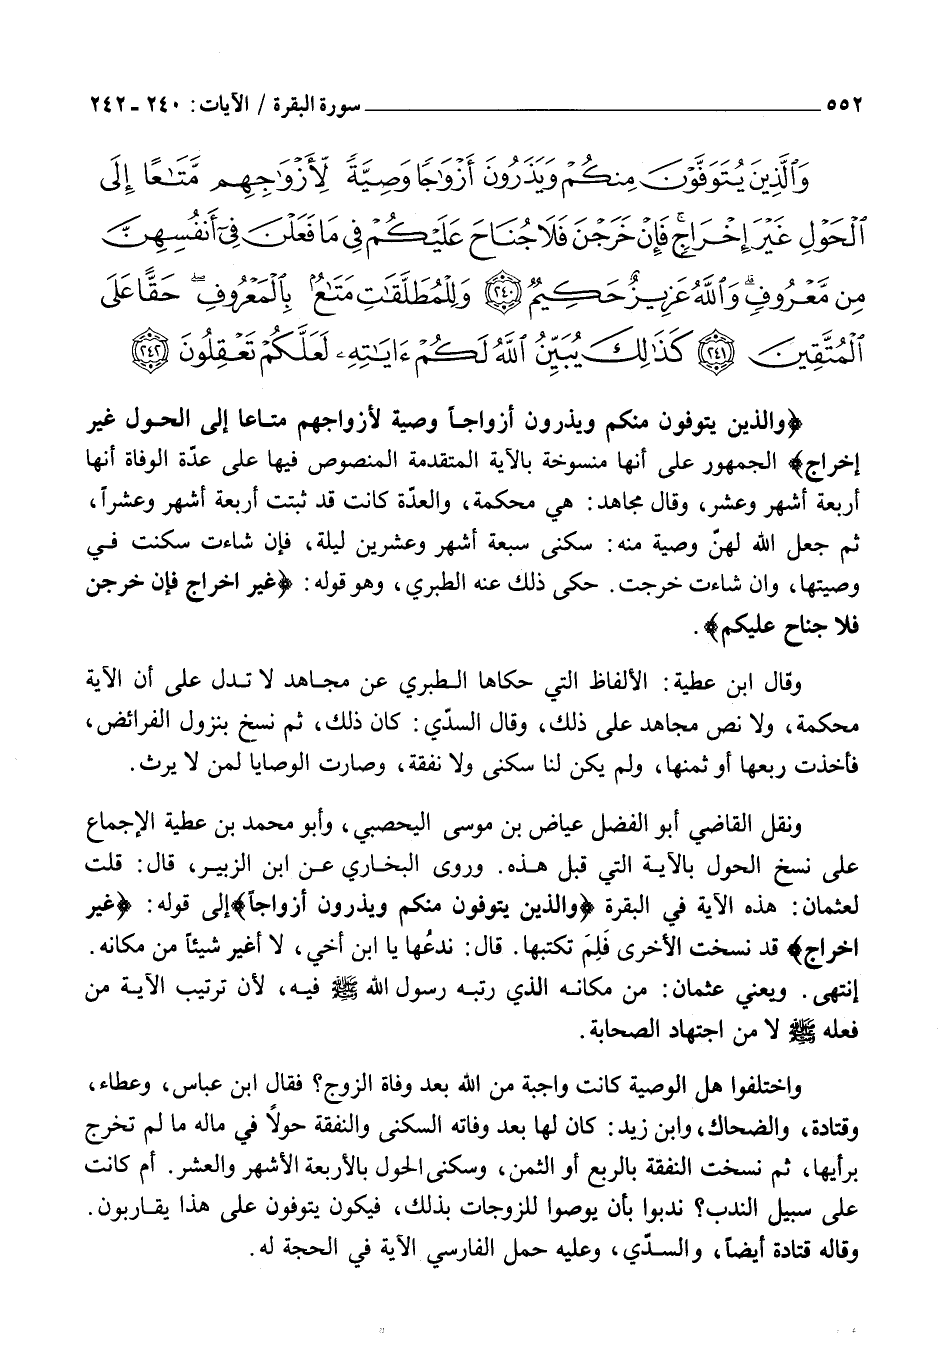 ٥٥٢ ــــــــــــــــــــــــــــــــــــــــ سورة البقرة / الآيات: ٢٤٠ - ٢٤٢
وَٱلَّذِينَ يُتَوَفَّوْنَ مِنكُمْ وَيَذَرُونَ أَزْوَٰجًا وَصِيَّةً لِّأَزْوَٰجِهِم مَّتَٰعًا إِلَى
ٱلْحَوْلِ غَيْرَ إِخْرَاجٍ ۚ فَإِنْ خَرَجْنَ فَلَا جُنَاحَ عَلَيْكُمْ فِى مَا فَعَلْنَ فِىٓ أَنفُسِهِنَّ
مِن مَّعْرُوفٍ ۗ وَٱللَّهُ عَزِيزٌ حَكِيمٌ ﴿٢٤٠﴾ وَلِلْمُطَلَّقَٰتِ مَتَٰعٌۢ بِٱلْمَعْرُوفِ ۖ حَقًّا عَلَى
ٱلْمُتَّقِينَ ﴿٢٤١﴾ كَذَٰلِكَ يُبَيِّنُ ٱللَّهُ لَكُمْ ءَايَٰتِهِۦ لَعَلَّكُمْ تَعْقِلُونَ ﴿٢٤٢﴾
﴿والذين يتوفون منكم ويذرون أزواجاً وصية لأزواجهم متاعا إلى الحول غير
إخراج﴾ الجمهور على أنها منسوخة بالآية المتقدمة المنصوص فيها على عدّة الوفاة أنها
أربعة أشهر وعشر، وقال مجاهد: هي محكمة، والعدّة كانت قد ثبتت أربعة أشهر وعشراً،
ثم جعل الله لهنّ وصية منه: سكنى سبعة أشهر وعشرين ليلة، فإن شاءت سكنت في
وصيتها، وان شاءت خرجت. حكى ذلك عنه الطبري، وهو قوله: ﴿غير اخراج فإن خرجن
فلا جناح عليكم﴾.
وقال ابن عطية: الألفاظ التي حكاها الطبري عن مجاهد لا تدل على أن الآية
محكمة، ولا نص مجاهد على ذلك، وقال السدّي: كان ذلك، ثم نسخ بنزول الفرائض،
فأخذت ربعها أو ثمنها، ولم يكن لنا سكنى ولا نفقة، وصارت الوصايا لمن لا يرث.
ونقل القاضي أبو الفضل عياض بن موسى اليحصبي، وأبو محمد بن عطية الإجماع
على نسخ الحول بالآية التي قبل هذه. وروى البخاري عن ابن الزبير، قال: قلت
لعثمان: هذه الآية في البقرة ﴿والذين يتوفون منكم ويذرون أزواجاً﴾إلى قوله: ﴿غير
اخراج﴾ قد نسخت الأخرى فَلِمَ تكتبها. قال: ندعُها يا ابن أخي، لا أغير شيئاً من مكانه.
إنتهى. ويعني عثمان: من مكانه الذي رتبه رسول الله ﷺ فيه، لأن ترتيب الآية من
فعله ﷺ لا من اجتهاد الصحابة.
واختلفوا هل الوصية كانت واجبة من الله بعد وفاة الزوج؟ فقال ابن عباس، وعطاء،
وقتادة، والضحاك، وابن زيد: كان لها بعد وفاته السكنى والنفقة حولاً في ماله ما لم تخرج
برأيها، ثم نسخت النفقة بالربع أو الثمن، وسكنى الحول بالأربعة الأشهر والعشر. أم كانت
على سبيل الندب؟ ندبوا بأن يوصوا للزوجات بذلك، فيكون يتوفون على هذا يقاربون.
وقاله قتادة أيضاً، والسدّي، وعليه حمل الفارسي الآية في الحجة له.